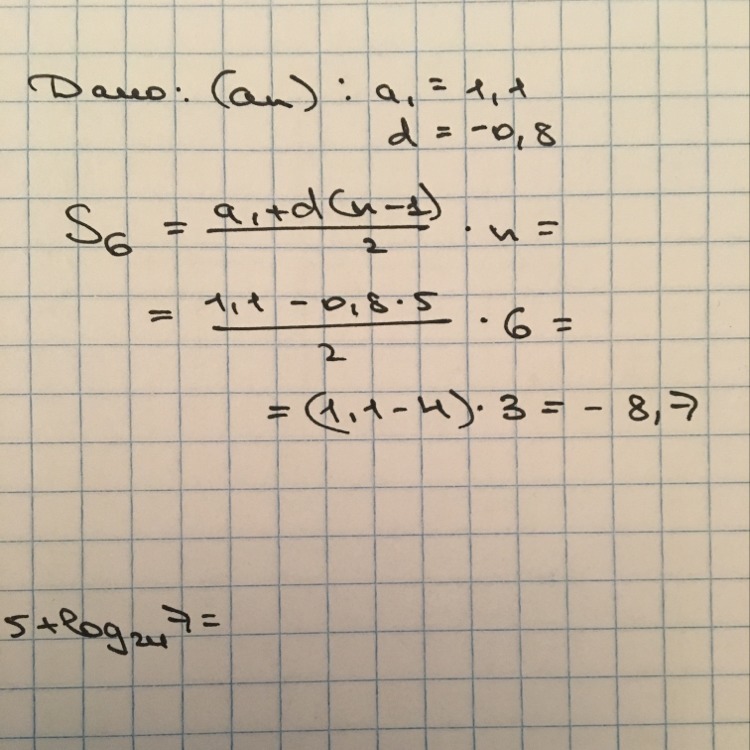 Дано: (an): a₁ = 1,1
d = -0,8
S₆ = (a₁+d(n-1))/2 · n =
= (1,1 - 0,8·5)/2 · 6 =
= (1,1-4)·3 = - 8,7
5+log₂₄7=